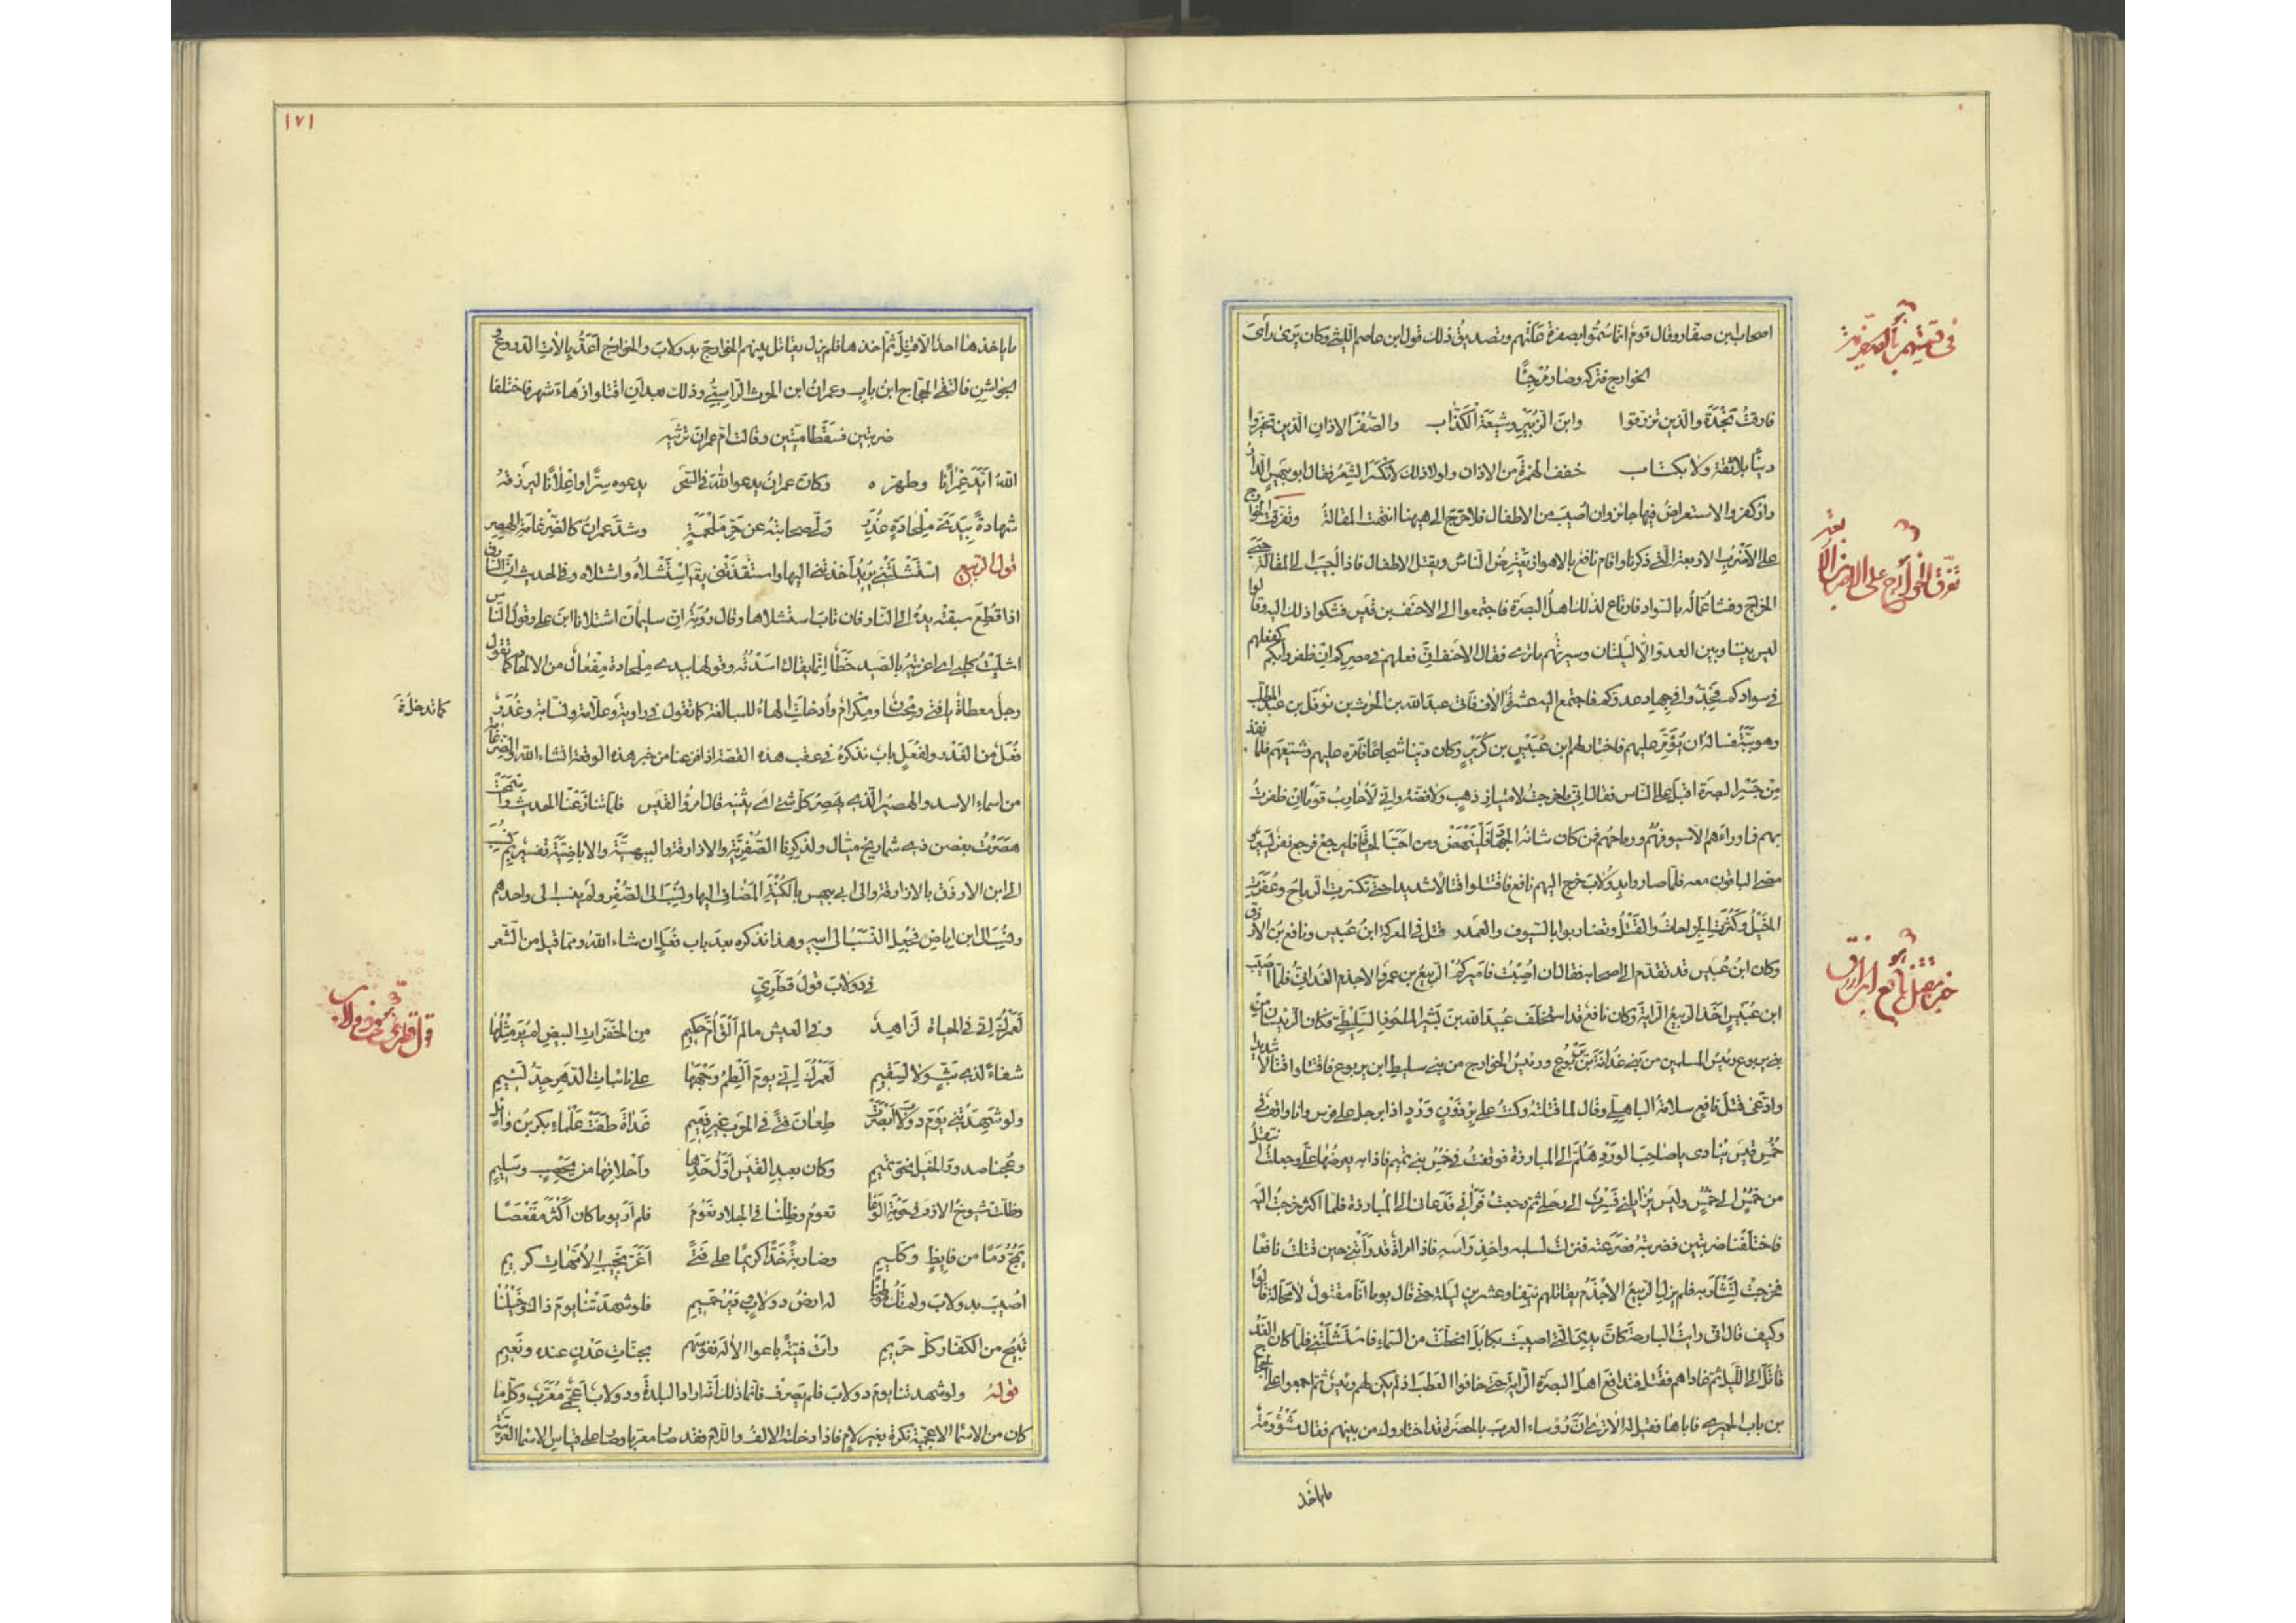 اصحاب ابن صفار وقال قوم انما سموا بصفرة علتهم وتصديق ذلك قول ابن عاصم الليثي وكان يرى رأى
الخوارج فتركه وصار مرجئا
فارقت نجدة والذين تزرقوا وابن الزبير وشيعة الكذاب والصفر الاذان الذين تخيروا
دينا بلا ثقة ولا بكتاب خفف الهمزة من الاذان ولولا ذلك لانكسر الشعر فقال ابو بيهس الدار
دار كفر والاستعراض فيها جائز وان اصيب من الاطفال فلا حرج الى هيهنا انتهت المقالة وتفرقت الخوارج
على الاضرب الاربعة التى ذكرنا واقام نافع بالاهواز يعترض الناس ويقتل الاطفال فاذا اجيب الى المقالة جبى
الخراج وفشا عماله بالسواد فارتاع لذلك اهل البصرة فاجتمعوا الى الاحنف بن قيس فشكوا ذلك اليه وقالوا
ليس بيننا وبين العدو الا ليلتان وسيرتهم ما ترى فقال الاحنف ان فعلهم فى مصركم ان ظفروا بكم كفعلهم
فى سوادكم فجدوا فى جهاد عدوكم فاجتمع اليه عشرة الاف فاتى عبد الله بن الحرث بن نوفل بن عبد المطلب
وهو ببة فساله ان يؤمر عليهم فاختار لهم ابن عبيس بن كريز وكان دينا شجاعا فامره عليهم وشيعهم فلما نفذ
من جسر البصرة اقبل على الناس فقال انى ما خرجت لامتيار ذهب ولا فضة وانى لاحارب قوما ان ظفرت
بهم فما وراءهم الا سيوفهم ورماحهم فمن كان شانه الجهاد فلينهض ومن احب الحياة فليرجع فرجع نفر يسير و
مضى الباقون معه فلما صاروا بدولاب خرج اليهم نافع فاقتتلوا قتالا شديدا حتى تكسرت الرماح وعقرت
الخيل وكثرت الجراحات والقتل وتضاربوا بالسيوف والعمد و قتل فى المعركة ابن عبيس ونافع بن الازرق
وكان ابن عبيس قد تقدم الى اصحابه فقال ان اصبت فاميركم الربيع بن عمرو الاجذم الغدانى فلما اصيب
ابن عبيس اخذ الربيع الراية وكان نافع قد استخلف عبيد الله بن بشير بن الماحوز السليطى فكان الرئيسان من
بنى يربوع رئيس المسلمين من بنى غدانة بن يربوع ورئيس الخوارج من بنى سليط ابن يربوع فاقتتلوا قتالا شديدا
وادعى قتل نافع سلامة الباهلى وقال لما قتلته وكنت على برذون ورد اذا برجل على فرس وانا واقف فى
خمس قيس ينادى يا صاحب الورد هلم الى المبارزة فوقفت فى خمس بنى تميم فاذا به يعرضها على وجعلت اتنقل
من خمس الى خمس وليس يزايلنى فصرت الى رحلى ثم رجعت فرآنى فدعانى الى المبارزة فلما اكثر خرجت اليه
فاختلفنا ضربتين فضربته فصرعته فنزلت لسلبه واخذ راسه فاذا امراة قد راتنى حين قتلت نافعا
فخرجت لتثأر به فلم يزل الربيع الاجذم يقاتلهم نيفا وعشرين ليلة حتى قال يوما انا مقتول لا محالة قالوا
وكيف قال انى رايت البارحة كان يدى التى اصيبت بكابل انحطت من السماء فاستشلتنى فلما كان الغد
قاتل الى الليل ثم غاداهم فقتل فتدافع اهل البصرة الراية حتى خافوا العطب اذ لم يكن لهم رئيس ثم اجمعوا على الحجاج
بن باب الحميرى فاباها فقيل له الا ترى ان رؤساء العرب بالحضرة قد اختاروك من بينهم فقال مشؤومة
ما ياخذ
فى تسميتهم بالصفرية
تفرق الخوارج على الاضرب الاربعة
خبر مقتل نافع ابن الازرق
١٧١
ما ياخذها احد الا قتل ثم اخذها فلم يزل يقاتل بينهم الخوارج بدولاب والخوارج اعد بالات الدروع و
الجواشن فالتقى الحجاج ابن باب وعمران ابن الحرث الراسبى وذلك بعد ان اقتتلوا زهاء شهر فاختلفا
ضربتين فسقطا ميتين وقالت ام عمران ترثيه
الله ايد عمرانا وطهره وكان عمران يدعو الله فى السحر يدعوه سرا واعلانا ليرزقه
شهادة بيدى ملحادة غدر ولى صحابته عن حر ملحمة وشد عمران كالضرغامة الهصر
قول الربيع استشلتنى يريد اخذتنى اليها واستنقذتنى يقال استشلاه واشتلاه وفى الحديث ان السارق
اذا قطع سبقته يده الى النار فان تاب استشلاها وقال رؤبة ان سليمان اشتلانا ابن على وقول الناس
اشليت كلبى اى اغريته بالصيد خطا انما يقال اسدته وقولها بيدى ملحادة مفعال من الالحاد كما تقول
رجل معطاة يا فتى ومحسان ومكرام وادخلت الهاء للمبالغة كما تقول فى راوية وعلامة ونسابة وغدر
كما تدخل فى
فعل من الغدر ولفعل باب نذكره فى عقب هذه القصة اذا فرغنا من خبر هذه الوقعة ان شاء الله والضرغام
من اسماء الاسد والهصر الذى يهصر كل شئ اى يثنيه قال امرؤ القيس فلما تنازعنا الحديث واسمحت
هصرت بغصن ذى شماريخ ميال ولذكرنا الصفرية والازارقة والبيهسية والاباضية تفسير لم نسب
الى ابن الازرق بالازارقة والى ابى بيهس بالكنية المضاف اليها ونسب الى الصفر ولم ينسب الى واحدهم
ونسب الى ابن اباض فجعل النسب الى ابيه وهذا نذكره بعد باب فعل ان شاء الله ومما قيل من الشعر
فى دولاب قول قطرى
لعمرك انى فى الحياة لزاهد وفى العيش ما لم الق ام حكيم من الخفرات البيض لم ير مثلها
شفاء لذى بث ولا لسقيم لعمرك انى يوم الطم وجهها على نائبات الدهر جد لئيم
ولو شهدتنى يوم دولاب ابصرت طعان فتى فى الحرب غير ذميم غداة طفت علماء بكر بن وائل
وعجنا صدور الخيل نحو تميم وكان بعبد القيس اول حدها واحلافها من يحصب وسليم
وظلت شيوخ الازد فى حومة الوغا تعوم وظلنا فى الجلاد نعوم فلم ار يوما كان اكثر مقعصا
يمج دما من فايظ وكليم وضاربة خدا كريما على فتى اغر نجيب الامهات كريم
اصيب بدولاب ولم تك موطنا له ارض دولاب ودير حميم فلو شهدتنا يوم ذاك وخيلنا
تبيح من الكفار كل حريم رات فتية باعوا الاله نفوسهم بجنات عدن عنده ونعيم
قوله ولو شهدتنا يوم دولاب فلم يصرف فانما ذلك انه اراد البلدة ودولاب اعجمى معرب وكل ما
كان من الاسما الاعجمية نكرة بغير لام فاذا دخلته الالف واللام فقد صار معربا وصار على قياس الاسما العربية
قول قطرى فى دولاب